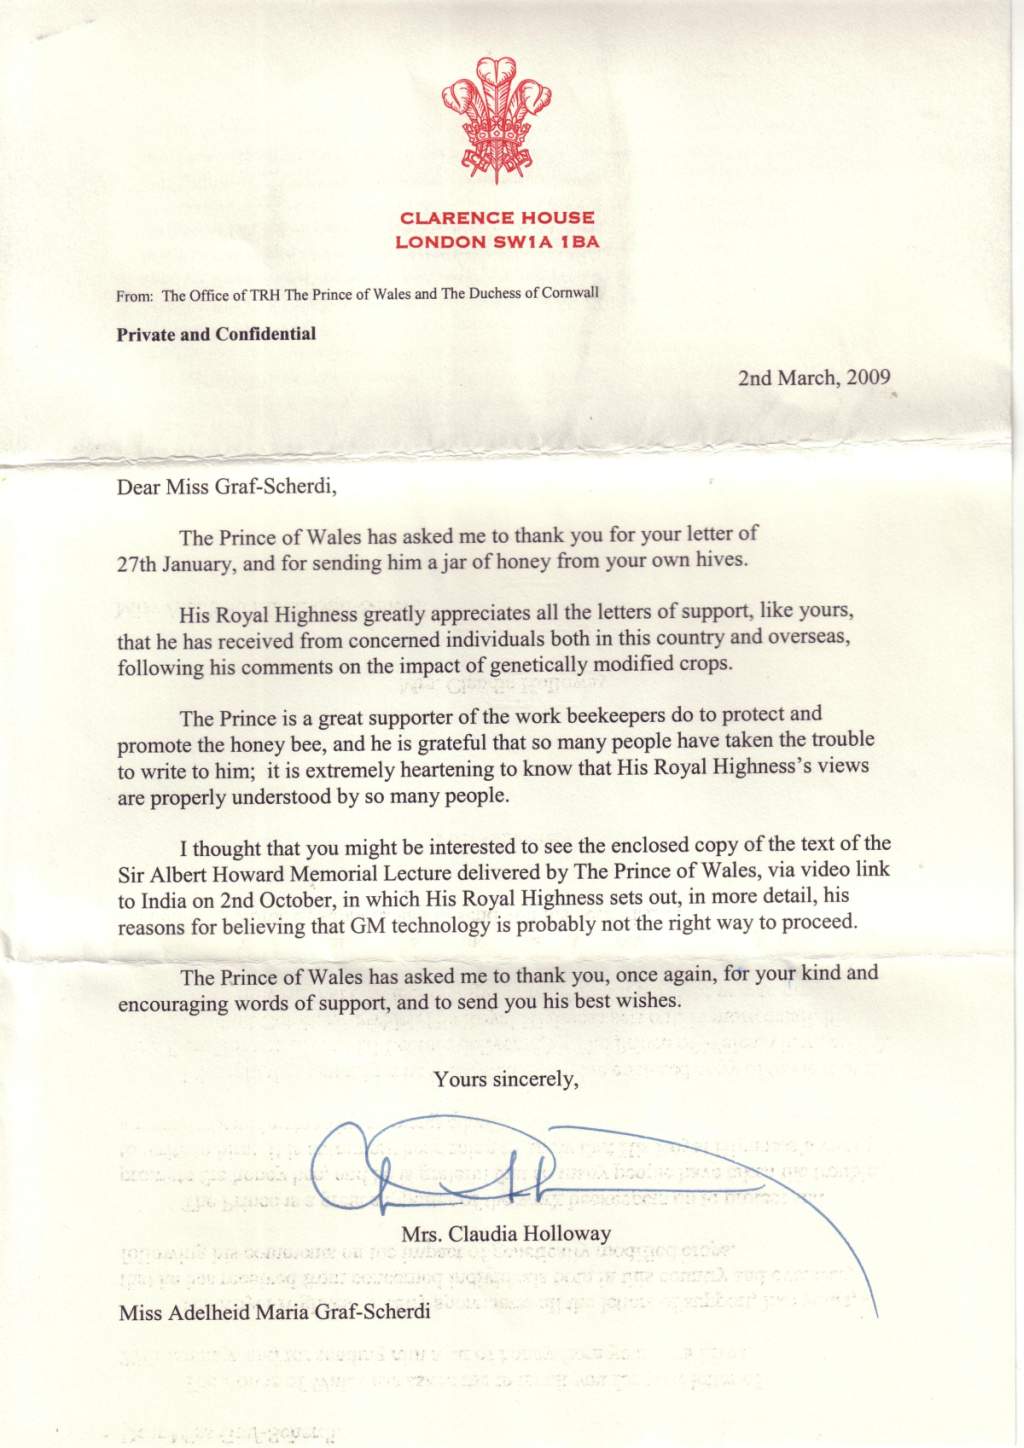 CLARENCE HOUSE
LONDON SW1A 1BA
From: The Office of TRH The Prince of Wales and The Duchess of Cornwall
Private and Confidential
2nd March, 2009
Dear Miss Graf-Scherdi,
The Prince of Wales has asked me to thank you for your letter of
27th January, and for sending him a jar of honey from your own hives.
His Royal Highness greatly appreciates all the letters of support, like yours,
that he has received from concerned individuals both in this country and overseas,
following his comments on the impact of genetically modified crops.
The Prince is a great supporter of the work beekeepers do to protect and
promote the honey bee, and he is grateful that so many people have taken the trouble
to write to him; it is extremely heartening to know that His Royal Highness's views
are properly understood by so many people.
I thought that you might be interested to see the enclosed copy of the text of the
Sir Albert Howard Memorial Lecture delivered by The Prince of Wales, via video link
to India on 2nd October, in which His Royal Highness sets out, in more detail, his
reasons for believing that GM technology is probably not the right way to proceed.
The Prince of Wales has asked me to thank you, once again, for your kind and
encouraging words of support, and to send you his best wishes.
Yours sincerely,
Mrs. Claudia Holloway
Miss Adelheid Maria Graf-Scherdi